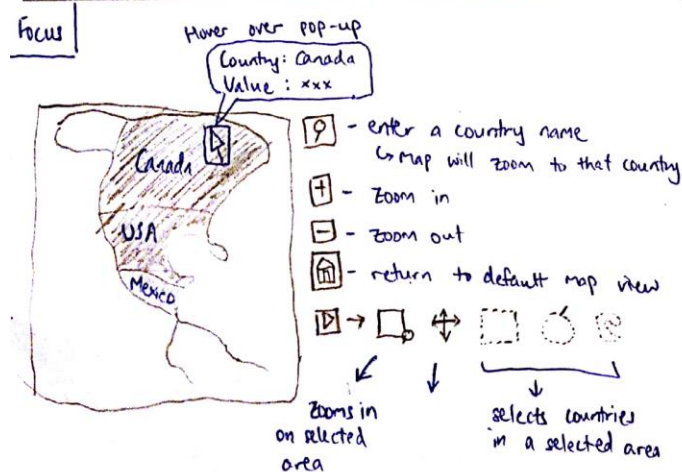 Focus
Hover over pop-up
Country: Canada
Value : xxx
Canada
USA
Mexico
- enter a country name
↳ Map will zoom to that country
+ - Zoom in
- - zoom out
- return to default map view
→
Zooms in
on selected
area
selects countries
in a selected area